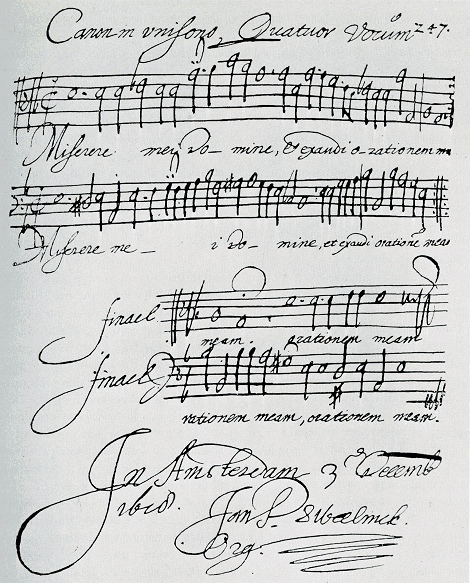 Canon in vnisono, Quatuor Vocum 247.
Miserere mei Do- mine, & exaudi o-rationem m
Miserere me - i Do - mine, et exaudi orationem meam
finael
meam. orationem meam
finael
rationem meam, orationem meam.
In Amsterdam 3 Decemb
1618.
Jan P. Swelinck.
Org.